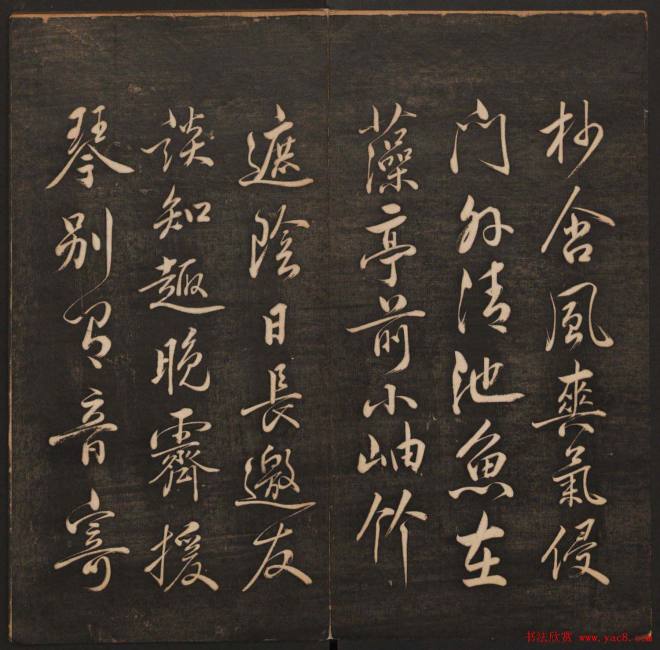 杪含風爽氣侵
門外清池魚在
藻亭前小岫竹
遮陰日長邀友
談知趣晚霽援
琴别有音寄
书法欣赏 www.yac8.com